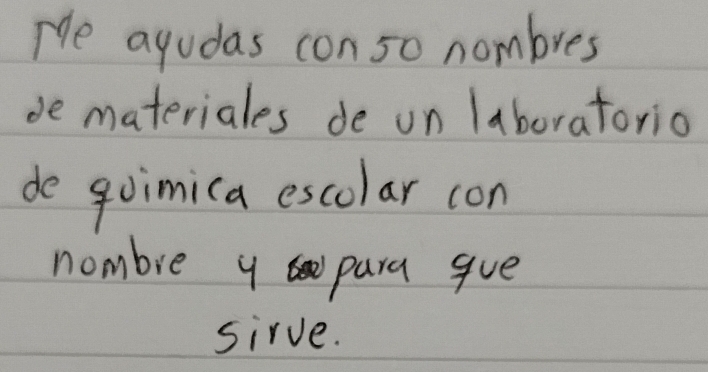 Me ayudas con 50 nombres
de materiales de un laboratorio
de quimica escolar con
nombre y para que
sirve.